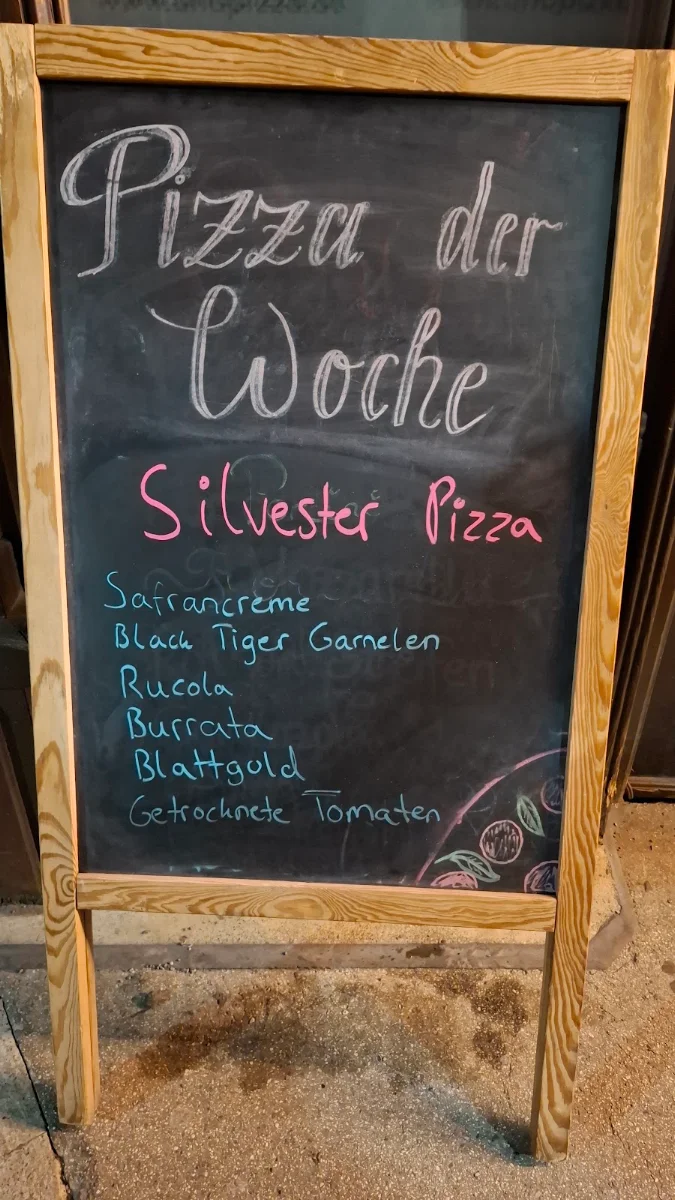 Pizza der
Woche
Silvester Pizza
Safrancreme
Black Tiger Garnelen
Rucola
Burrata
Blattgold
Getrocknete Tomaten